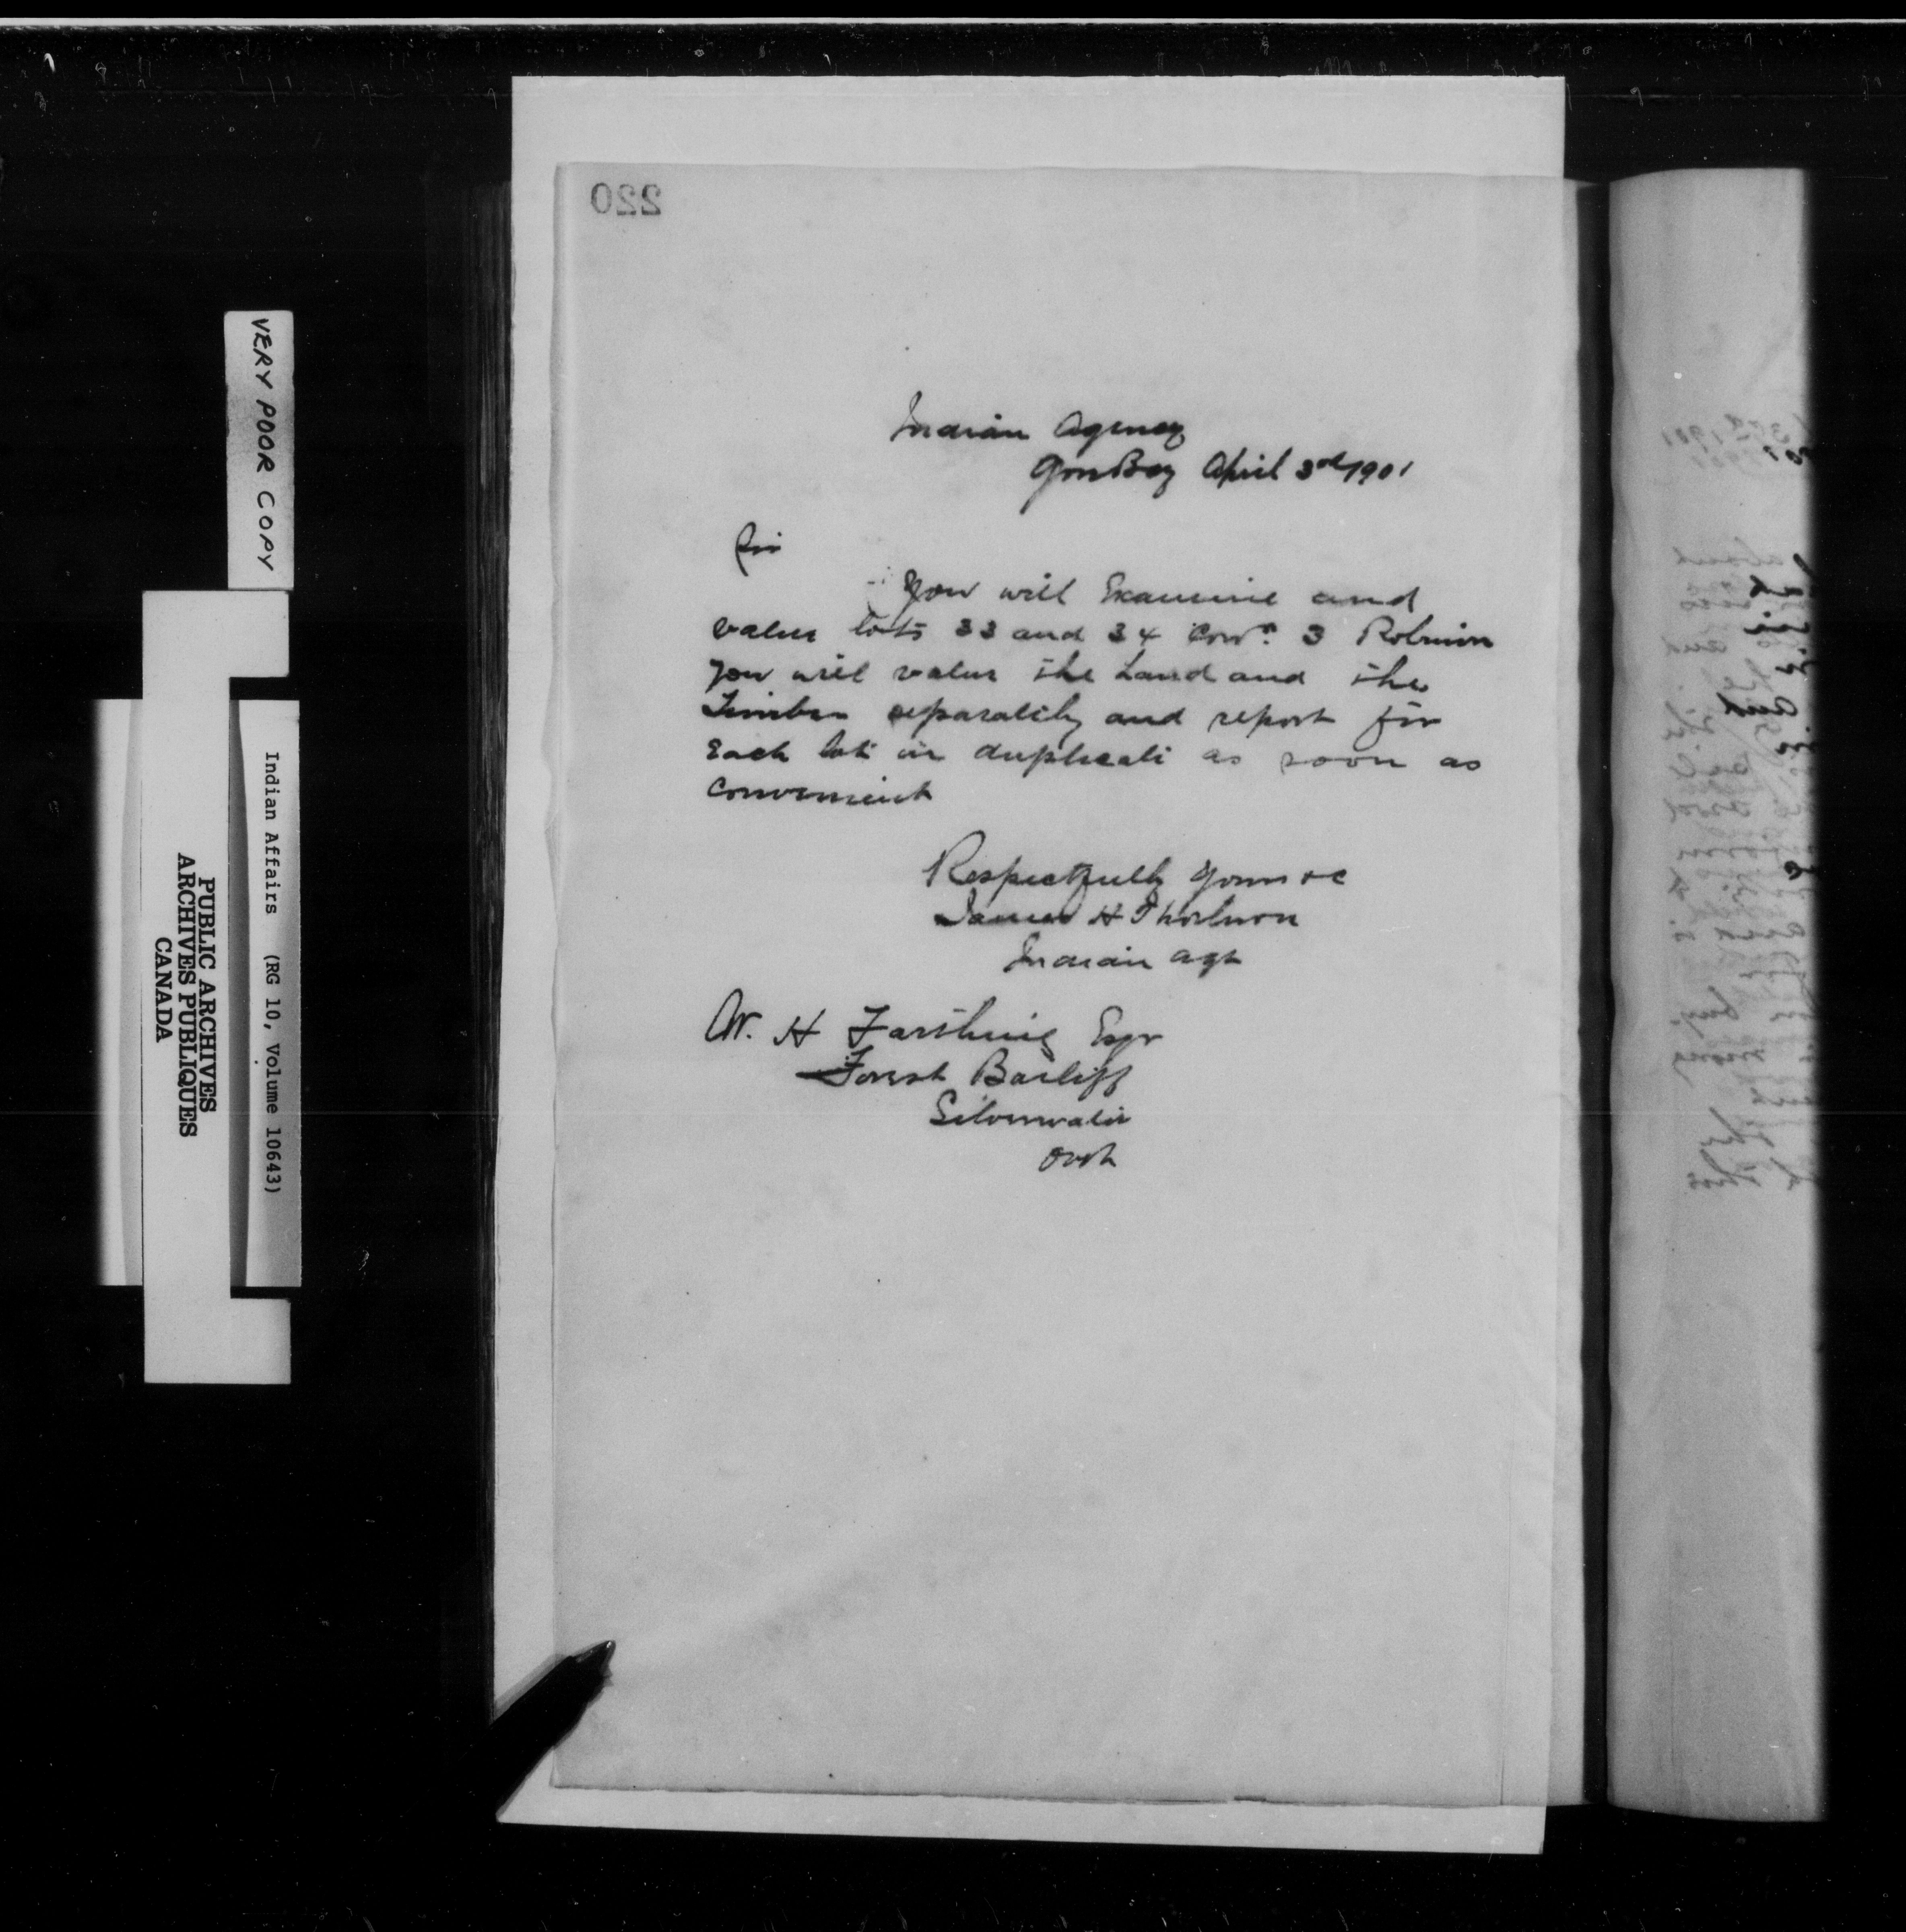 220
Indian Agency
Gore Bay April 3rd 1901
Sir
You will Examine and
value lots 33 and 34 Conn. 3 Robinson
you will value the Land and the
Timber separately and report for
Each lot in duplicate as soon as
convenient
Respectfully yours &c
James H Thorburn
Indian Agt
W. H Farthing Esqr
Forest Bailiff
Silverwater
Ont
VERY POOR COPY
Indian Affairs (RG 10, Volume 10643)
PUBLIC ARCHIVES
ARCHIVES PUBLIQUES
CANADA